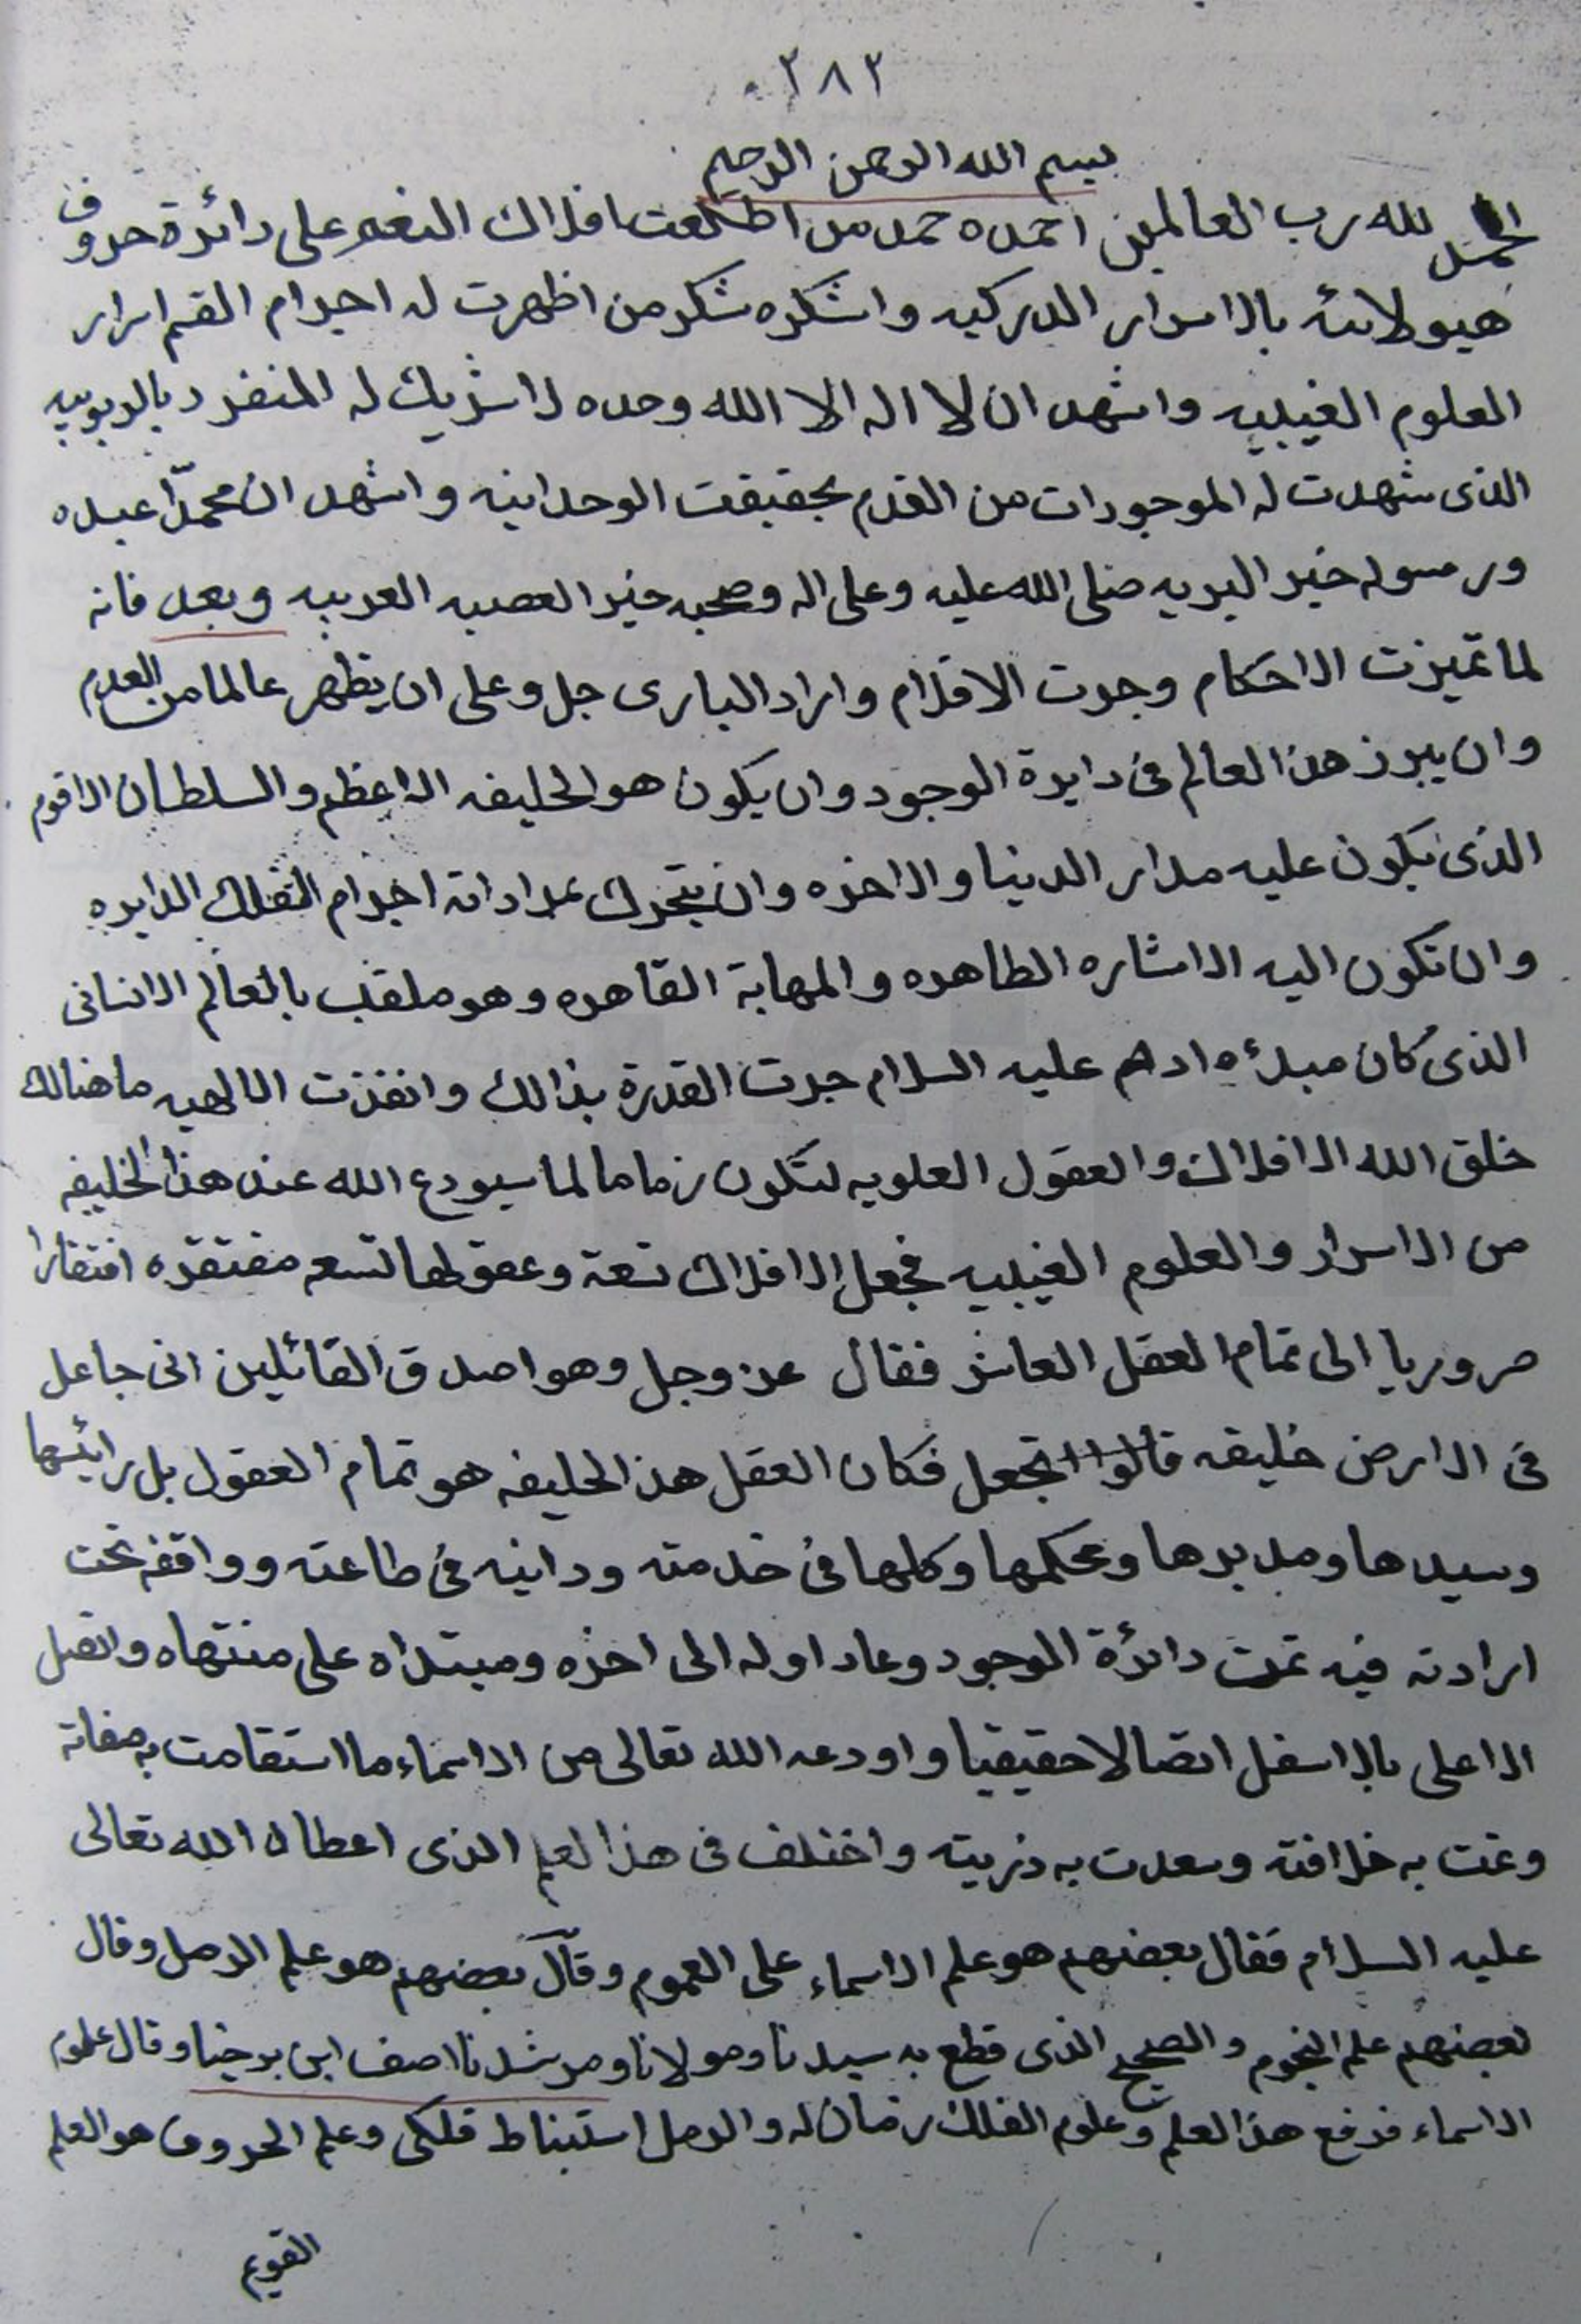 ٢٨٢
بسم الله الرحمن الرحيم
الحمد لله رب العالمين احمده حمد من اطلعت افلاك النغم على دائرة حروف
هيولانيّه بالاسرار الدركيه واشكره شكر من اظهرت له اجرام القسم اسرار
العلوم الغيبيه واشهد ان لا اله الا الله وحده لا شريك له المنفرد بالربوبيه
الذى شهدت له الموجودات من القدم بحقيقت الوحدانيه واشهد ان محمّدا عبده
ورسوله خير البريه صلى الله عليه وعلى اله وصحبه خير العصبيه العربيه وبعد فانه
لما تميزت الاحكام وجرت الاقلام واراد البارى جل وعلى ان يظهر عالما من العدم
وان يبرز هذا العالم فى دايرة الوجود وان يكون هو الخليفه الاعظم والسلطان الاقوم
الذى يكون عليه مدار الدنيا والاخره وان يتحرك بمراداته اجرام الفلك الدايره
وان تكون اليه الاشاره الطاهره والمهابة القاهره وهو ملقب بالعالم الانسانى
الذى كان مبدؤه ادم عليه السلام جرت القدرة بذالك وانفذت الالهيه ما هنالك
خلق الله الافلاك والعقول العلويه لتكون زماما لما سيودع الله عند هذا الخليفه
من الاسرار والعلوم الغيبيه فجعل الافلاك تسعة وعقولها تسعه مفتقره افتقارا
ضروريا الى تمام العقل العاشر فقال عز وجل وهو اصدق القائلين انى جاعل
فى الارض خليفه قالوا اتجعل فكان العقل هذا الخليفه هو تمام العقول بل رائيسها
وسيدها ومدبرها ومحكمها وكلها فى خدمته ودانيه فى طاعته وواقفه تحت
ارادته فيه تمت دائرة الوجود وعاد اوله الى اخره ومبتداه على منتهاه واتصل
الاعلى بالاسفل اتصالا حقيقيا واودعه الله تعالى من الاسماء ما استقامت به صفاته
وتمت به خلافته وسعدت به ذريته واختلف فى هذا العلم الذى اعطاه الله تعالى
عليه السلام فقال بعضهم هو علم الاسماء على العموم وقال بعضهم هو علم الرمل وقال
بعضهم علم النجوم والصحيح الذى قطع به سيدنا ومولانا ومرشدنا اصف ابن برخيا وقال علوم
الاسماء فرفع هذا العلم وعلوم الفلك له والرمل استنباط فلكى وعلم الحروف هو العلم
القويم